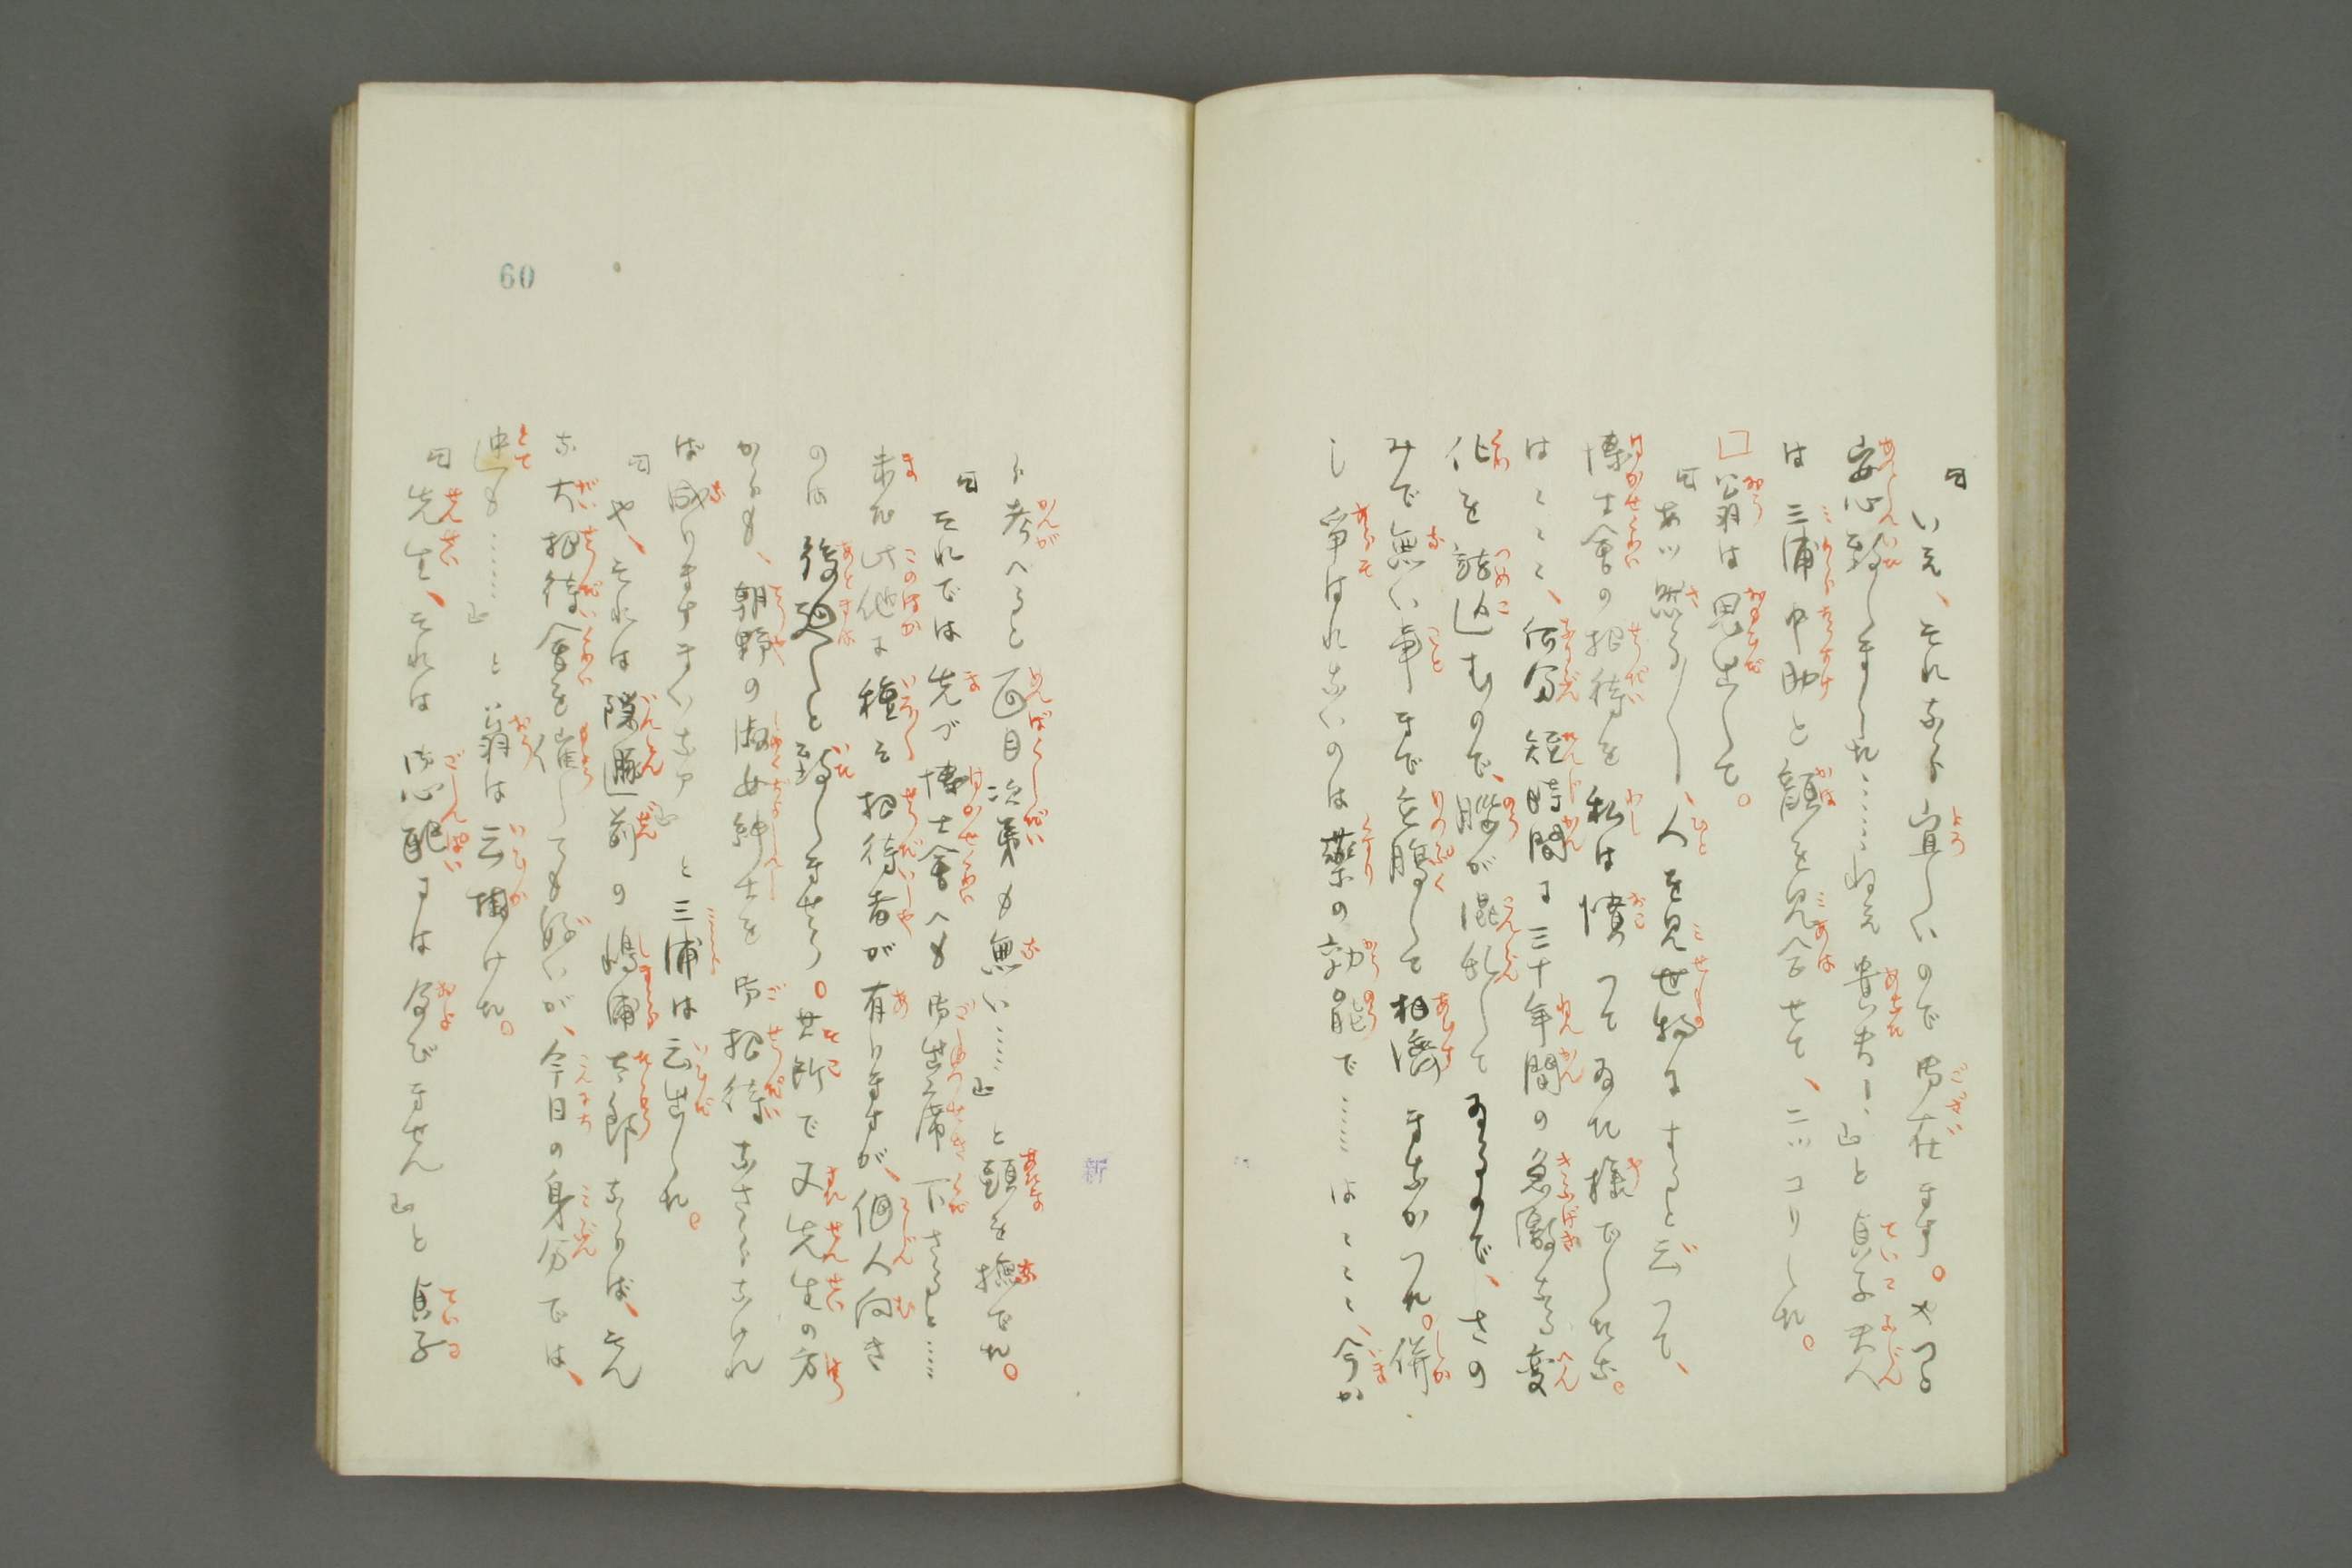 「いえ、それなら宜しいので御在ます。やつと
安心致しましたわ……ねえ貴方」と貞子夫人
は三浦中助と顔を見合せて、ニツコリした。
翁は思出して。
「あツ然う〳〵、人を見世物にすると云つて、
博士会の招待を私は憤つてゐた様でしたな。
はゝゝゝ、何分短時間に三十年間の急激なる変
化を詰込むので、脳が混乱してゐるので、さの
みで無い事まで立腹して相済まなかつた。併
し争はれないのは薬の効能で……はゝゝ、今か
ら考へると面目次第も無い……」と頭を撫でた。
「それでは先づ博士会へも御出席下さると……
未だ此他に種々招待者が有りますが、個人向き
のは後廻しと致しませう。其所で又先生の方
からも、朝野の淑女紳士を御招待なさらなけれ
ば成りますまいなア」と三浦は云出した。
「や、それは隠遯前の嶋浦太郎ならば、そん
な大招待会を催しても好いが、今日の身分では、
迚も……」と翁は云掛けた。
「先生、それは御心配には及びません」と貞子
60
新